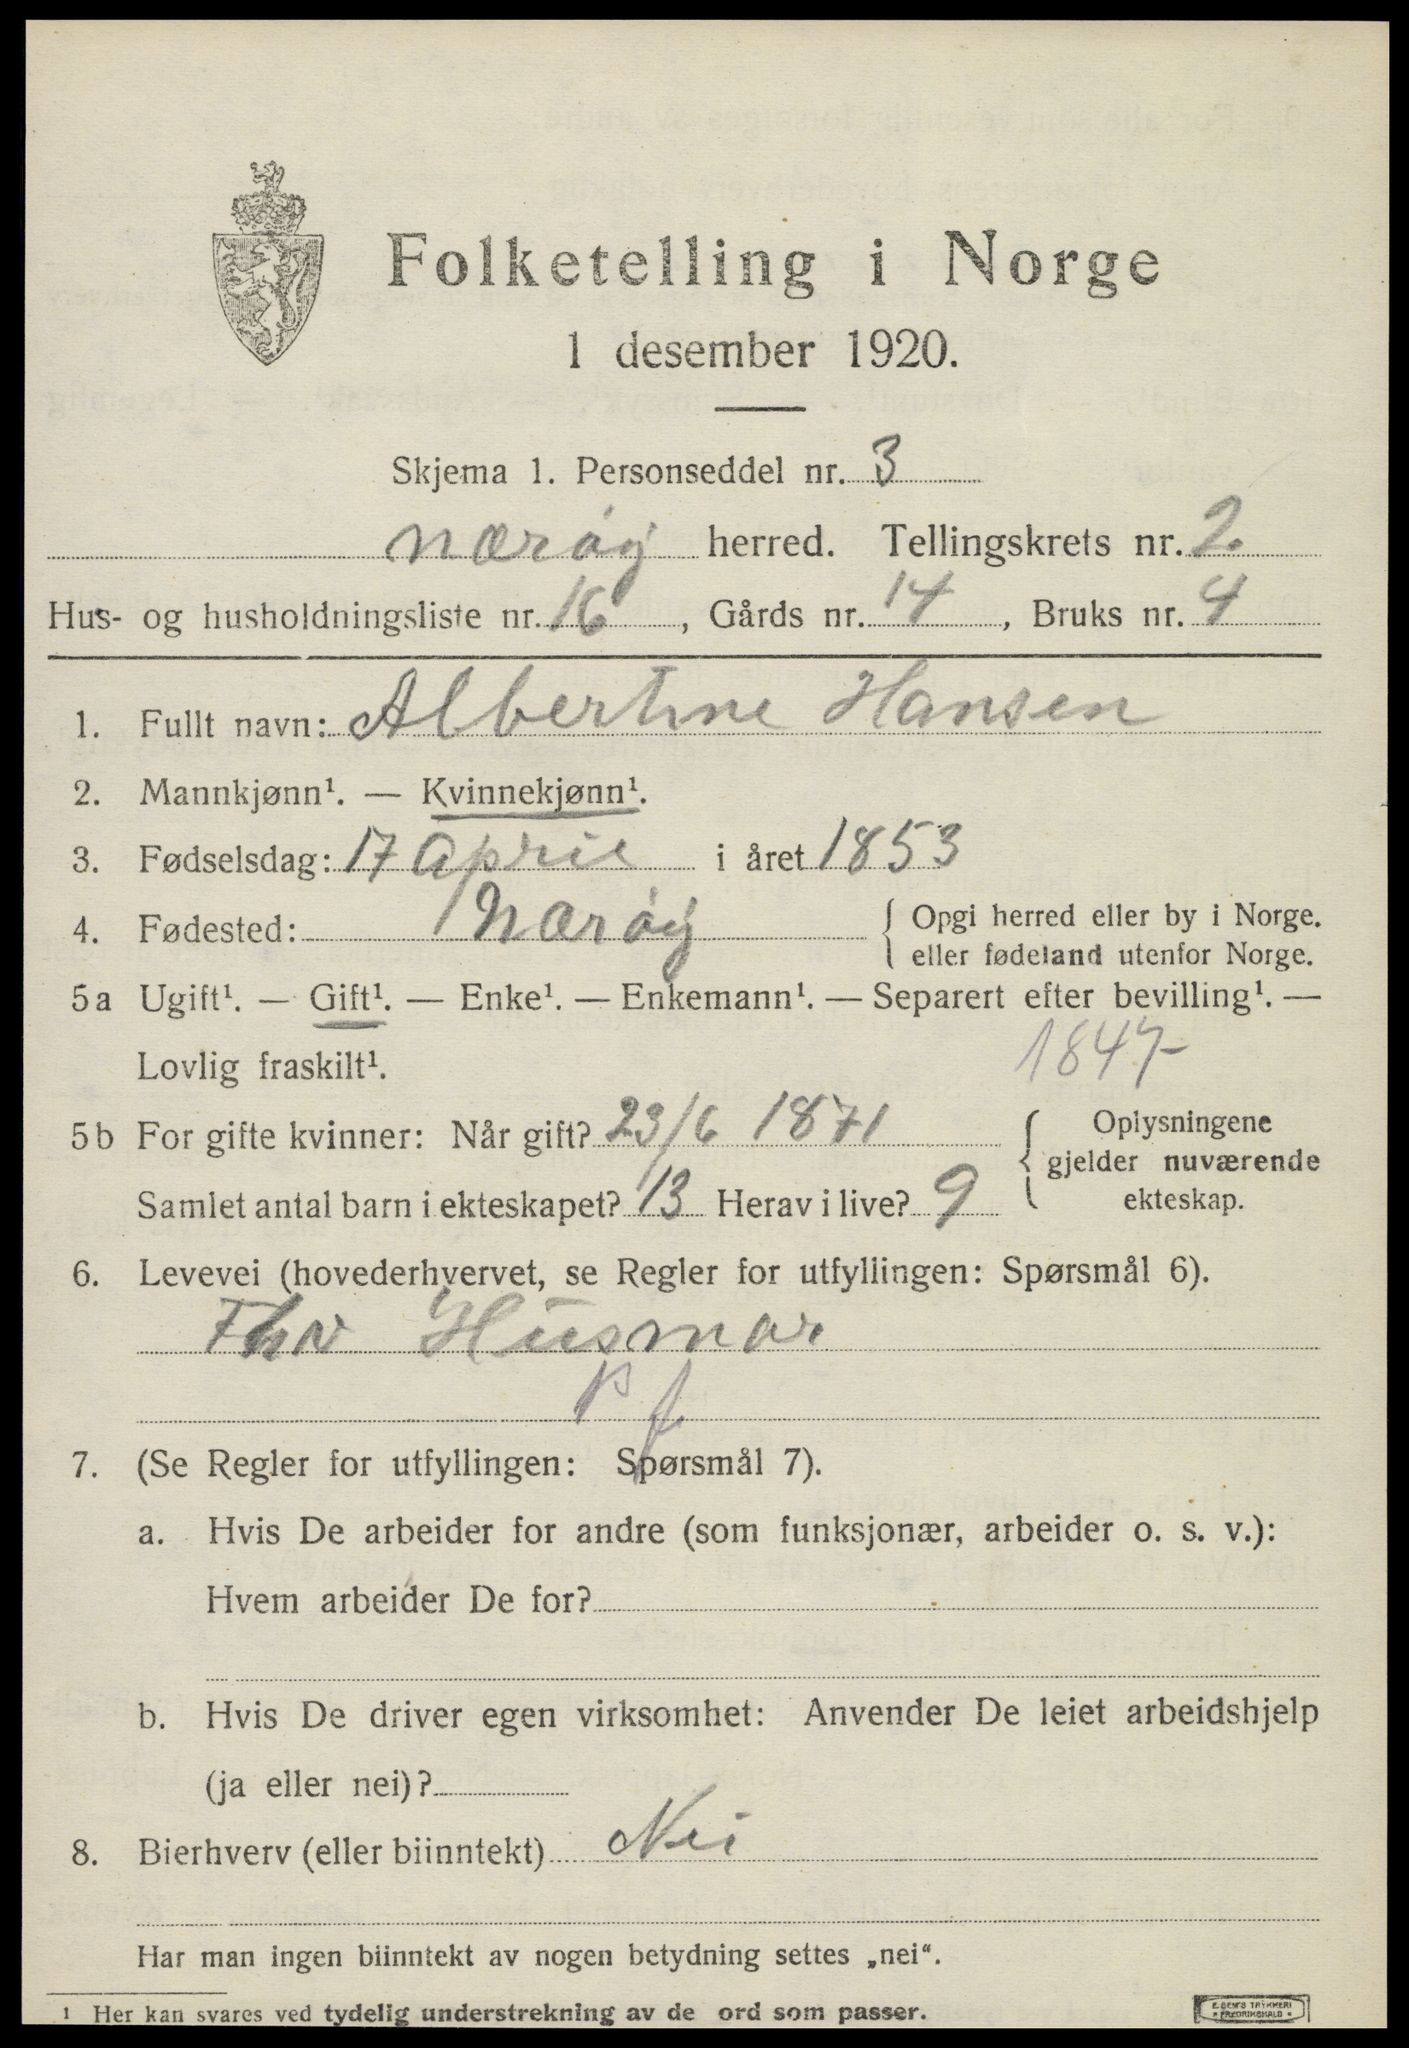 Folketelling i Norge
1 desember 1920.
Skjema 1. Personseddel nr. 3
Nærøy herred. Tellingskrets nr. 2
Hus- og husholdningsliste nr. 16, Gårds nr. 14, Bruks nr. 4
1. Fullt navn: Albertine Hansen
2. Mannkjønn¹. — Kvinnekjønn¹.
3. Fødselsdag: 17 April i året 1853
4. Fødested: Nærøy { Opgi herred eller by i Norge.
eller fødeland utenfor Norge.
5a Ugift¹. — Gift¹. — Enke¹. — Enkemann¹. — Separert efter bevilling¹. —
Lovlig fraskilt¹. 1847
5b For gifte kvinner: Når gift? 23/6 1871 { Oplysningene
gjelder nuværende
Samlet antal barn i ekteskapet? 13 Herav i live? 9 ekteskap.
6. Levevei (hovederhvervet, se Regler for utfyllingen: Spørsmål 6).
Husmor
7. (Se Regler for utfyllingen: Spørsmål 7).
a. Hvis De arbeider for andre (som funksjonær, arbeider o. s. v.):
Hvem arbeider De for?
b. Hvis De driver egen virksomhet: Anvender De leiet arbeidshjelp
(ja eller nei)?
8. Bierhverv (eller biinntekt) Nei
Har man ingen biinntekt av nogen betydning settes „nei“.
¹ Her kan svares ved tydelig understrekning av de ord som passer.
E. SEM'S TRYKKERI
FREDRIKSHALD